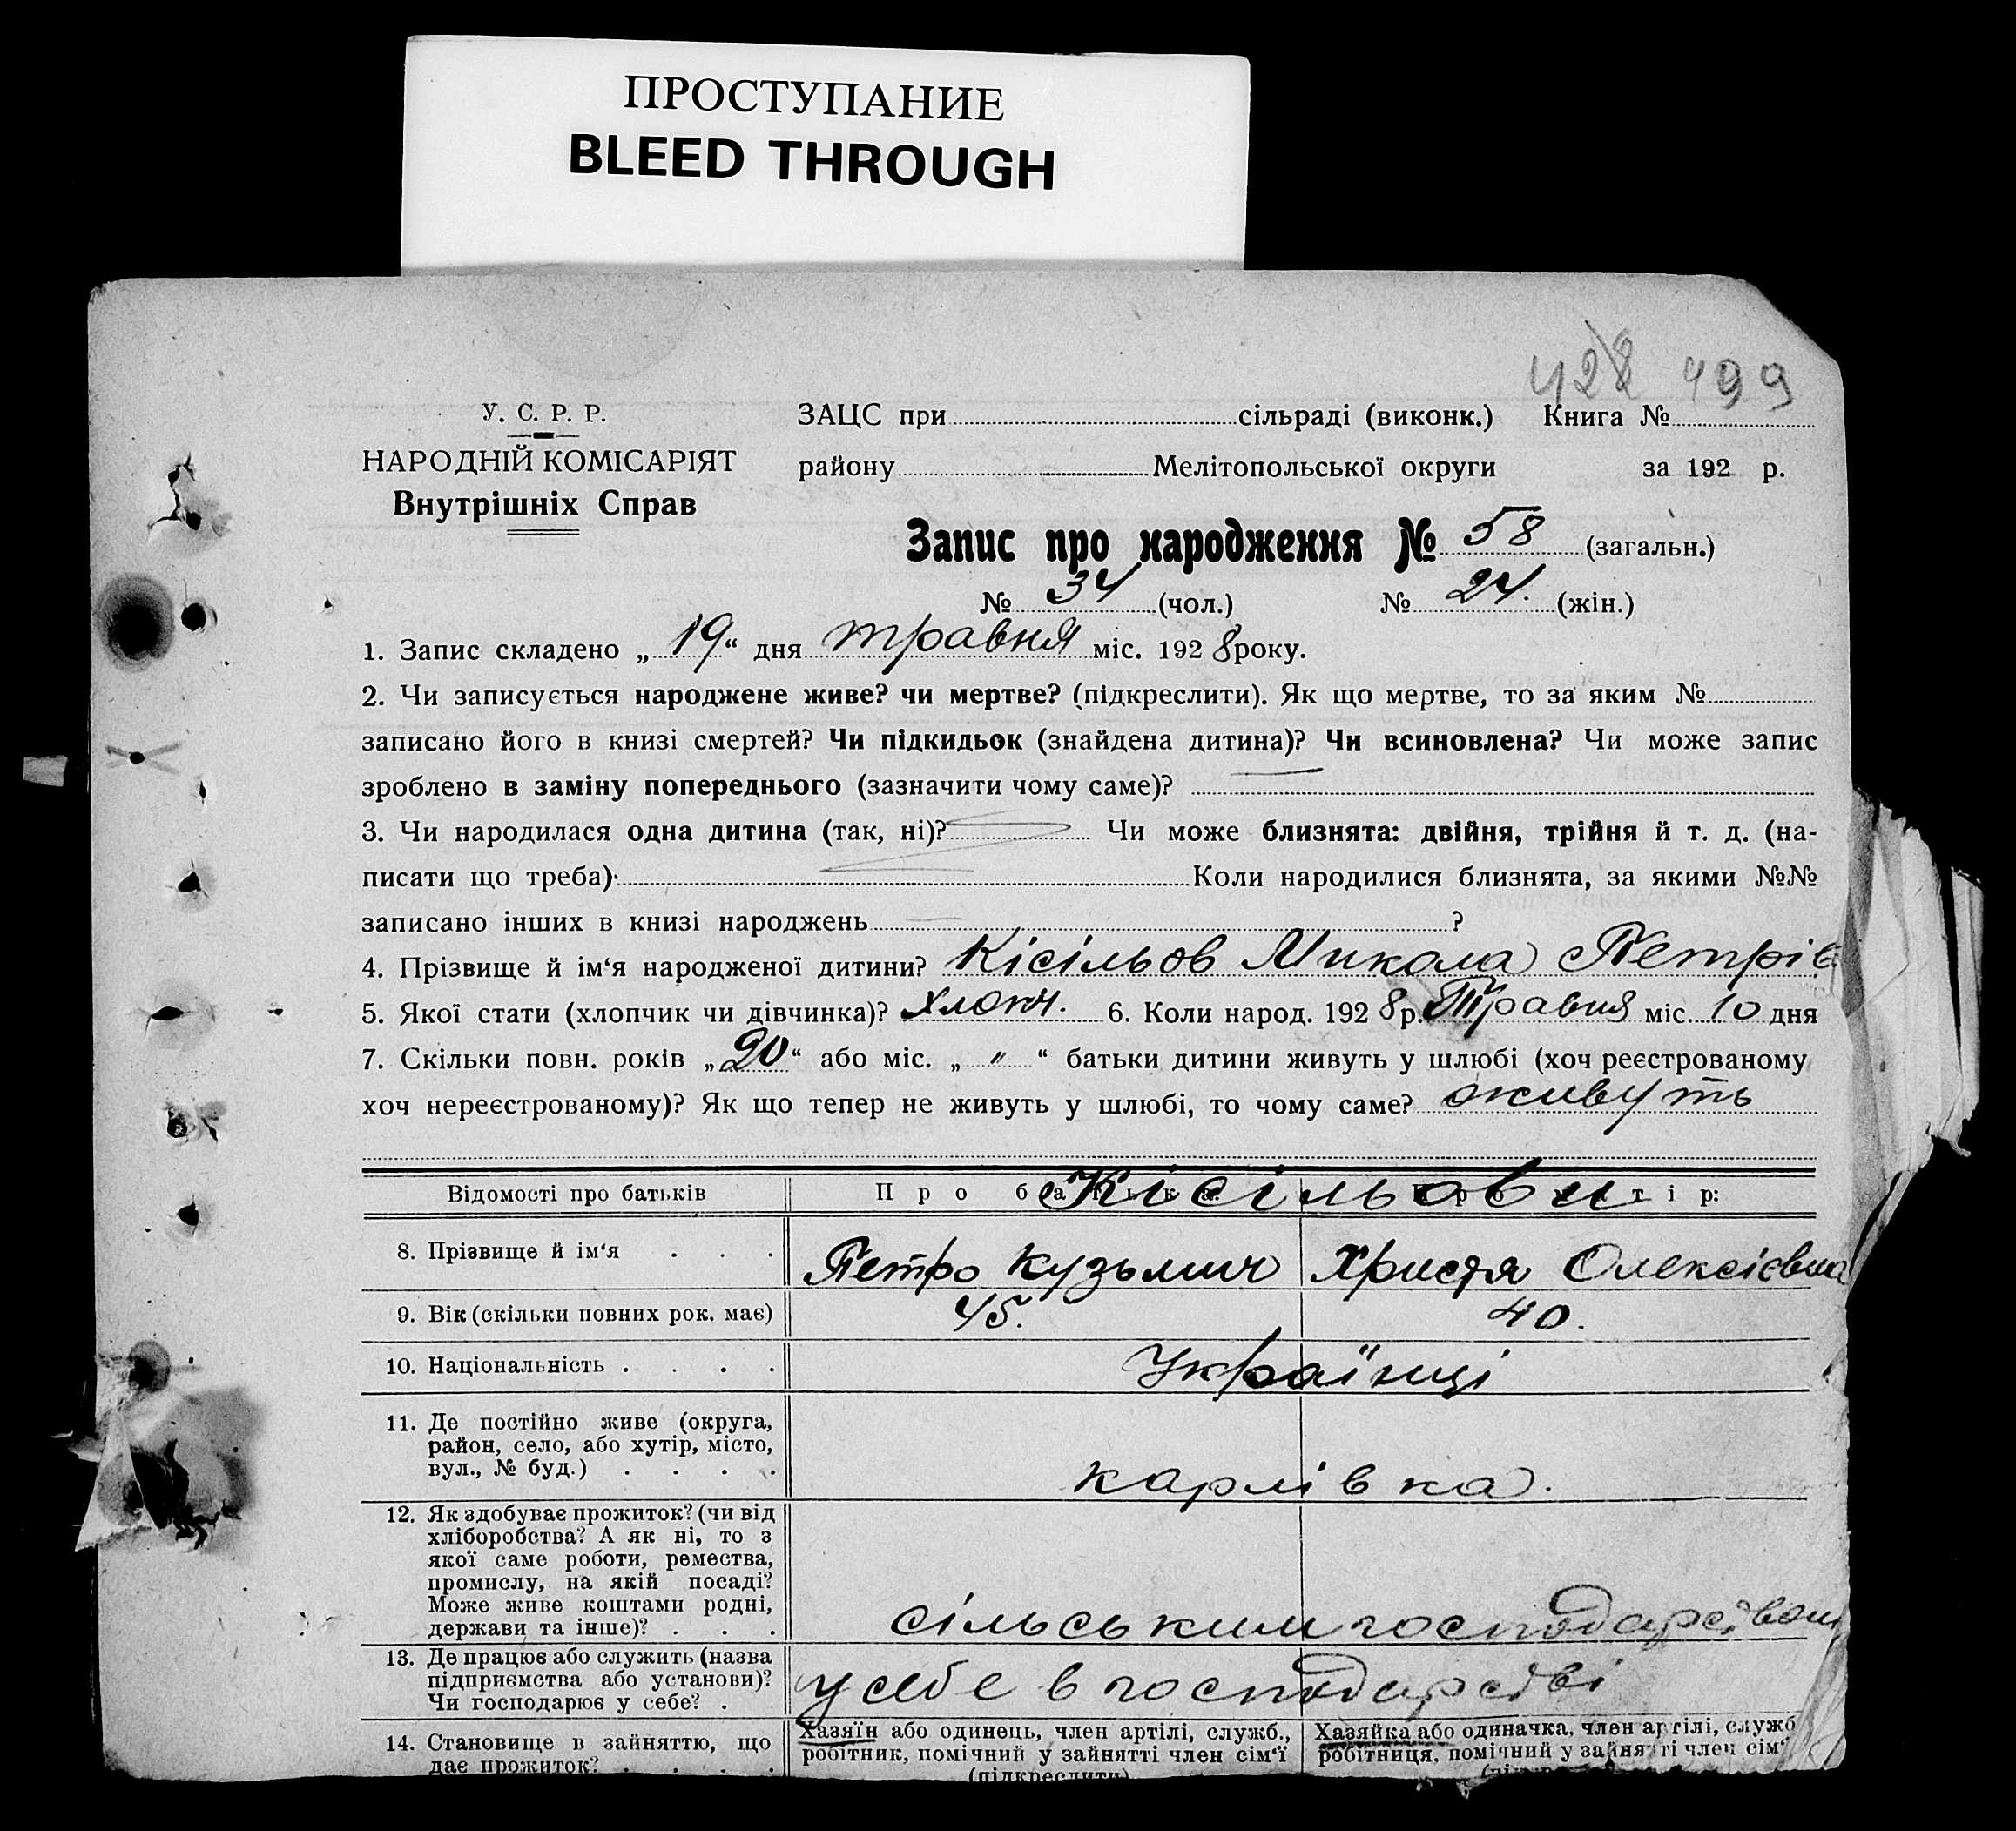 ПРОСТУПАНИЕ
BLEED THROUGH
428 499
У. С. Р. Р.
НАРОДНІЙ КОМІСАРІЯТ
Внутрішніх Справ
ЗАЦС при сільраді (виконк.) Книга №
району Мелітопольської округи за 192 р.
Запис про народження № 58 (загальн.)
№ 34 (чол.) № 24. (жін.)
1. Запис складено „19“ дня травня міс. 1928 року.
2. Чи записується народжене живе? чи мертве? (підкреслити). Як що мертве, то за яким №
записано його в книзі смертей? Чи підкидьок (знайдена дитина)? Чи всиновлена? Чи може запис
зроблено в заміну попереднього (зазначити чому саме)?
3. Чи народилася одна дитина (так, ні)? Чи може близнята: двійня, трійня й т. д. (на-
писати що треба) Коли народилися близнята, за якими №№
записано інших в книзі народжень ?
4. Прізвище й ім‘я народженої дитини? Кісільов Микола Петрів
5. Якої стати (хлопчик чи дівчинка)? хлопч. 6. Коли народ. 1928 р. Травня міс. 10 дня
7. Скільки повн. років „20“ або міс. „ " “ батьки дитини живуть у шлюбі (хоч реєстрованому
хоч нереєстрованому)? Як що тепер не живуть у шлюбі, то чому саме? живуть
Відомості про батьків Про батька: Про матір:
Кісільови
8. Прізвище й ім‘я . . . Петро Кузьмич Христя Олексієвна
9. Вік (скільки повних рок. має) 45. 40.
10. Національність . . . . Українці
11. Де постійно живе (округа,
район, село, або хутір, місто,
вул., № буд.) . . . .
карлівка.
12. Як здобуває прожиток? (чи від
хліборобства? А як ні, то з
якої саме роботи, ремества,
промислу, на якій посаді?
Може живе коштами родні,
держави та інше)? . . .
сільським господарством
13. Де працює або служить (назва
підприємства або установи)?
Чи господарює у себе? .
у себе в господарстві
14. Становище в зайняттю, що
дає прожиток? . . . .
Хазяїн або одинець, член артілі, служб.,
робітник, помічний у зайнятті член сім‘ї
(підкреслити)
Хазяйка або одиначка, член артілі, служб
робітниця, помічний у зайнятті член сім‘